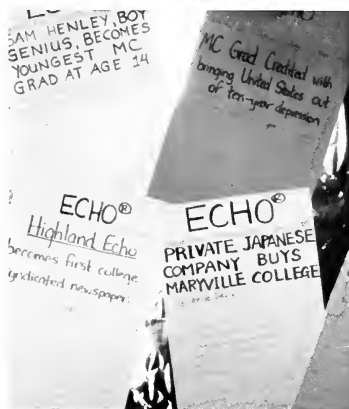 SAM HENLEY, BOY
GENIUS, BECOMES
YOUNGEST MC
GRAD AT AGE 14
MC Grad Credited with
bringing United States out
of ten-year depression
ECHO®
Highland Echo
becomes first college
syndicated newspaper.
ECHO®
PRIVATE JAPANESE
COMPANY BUYS
MARYVILLE COLLEGE